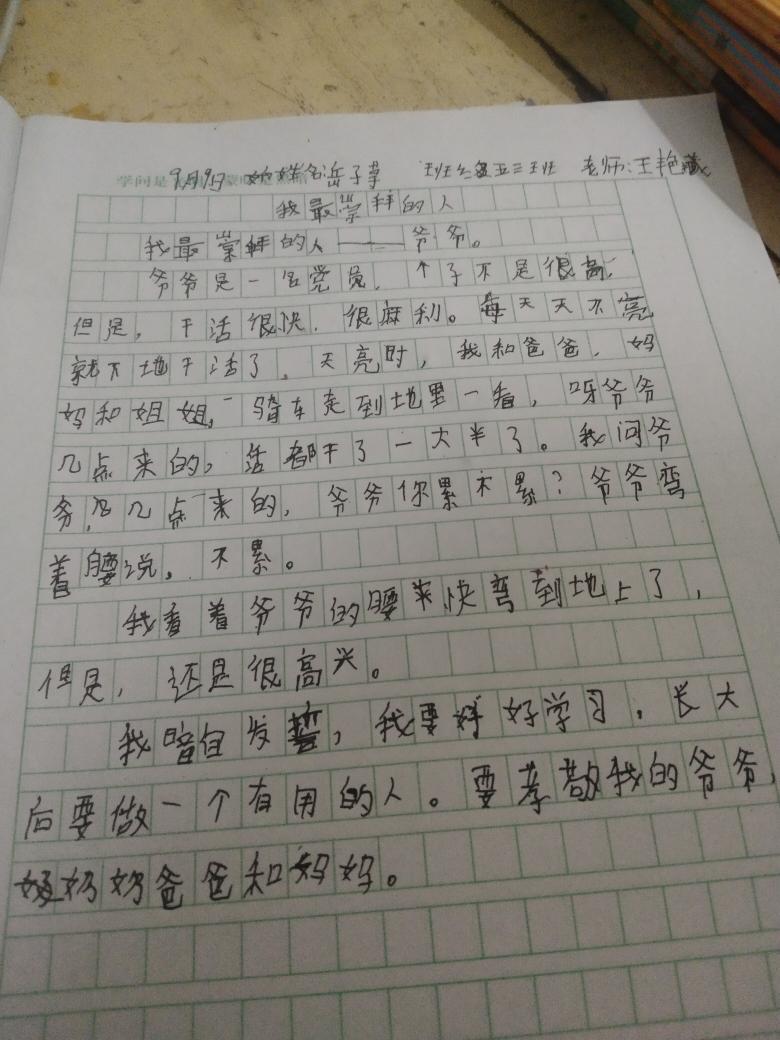 学问是 9月9日 姓名岳子葶 班级五三班 老师:王艳藏
我最崇拜的人
我最崇拜的人——爷爷。
爷爷是一名党员，个子不是很高，
但是，干活很快，很麻利。每天天不亮
就下地干活了，天亮时，我和爸爸，妈
妈和姐姐，骑车走到地里一看，呀爷爷
几点来的，活都干了一大半了。我问爷
爷，几点来的，爷爷你累不累？爷爷弯
着腰说，不累。
我看着爷爷的腰来快弯到地上了，
但是，还是很高兴。
我暗自发誓，我要好好学习，长大
后要做一个有用的人。要孝敬我的爷爷，
奶奶爸爸和妈妈。